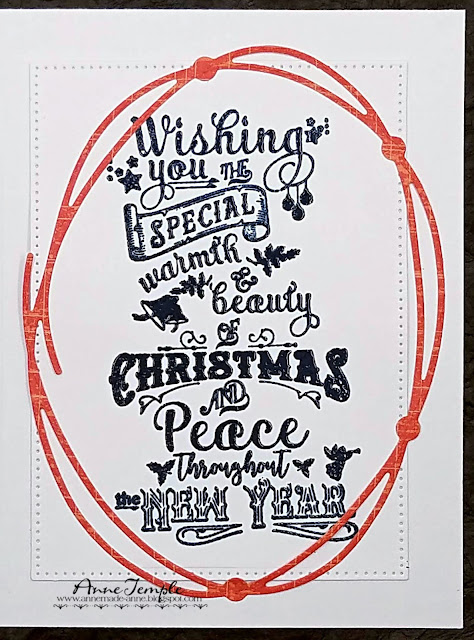 Wishing
you THE
SPECIAL
warmth
&
beauty
OF
CHRISTMAS
AND
Peace
Throughout
the NEW YEAR
Anne Temple
www.annemade-anne.blogspot.com